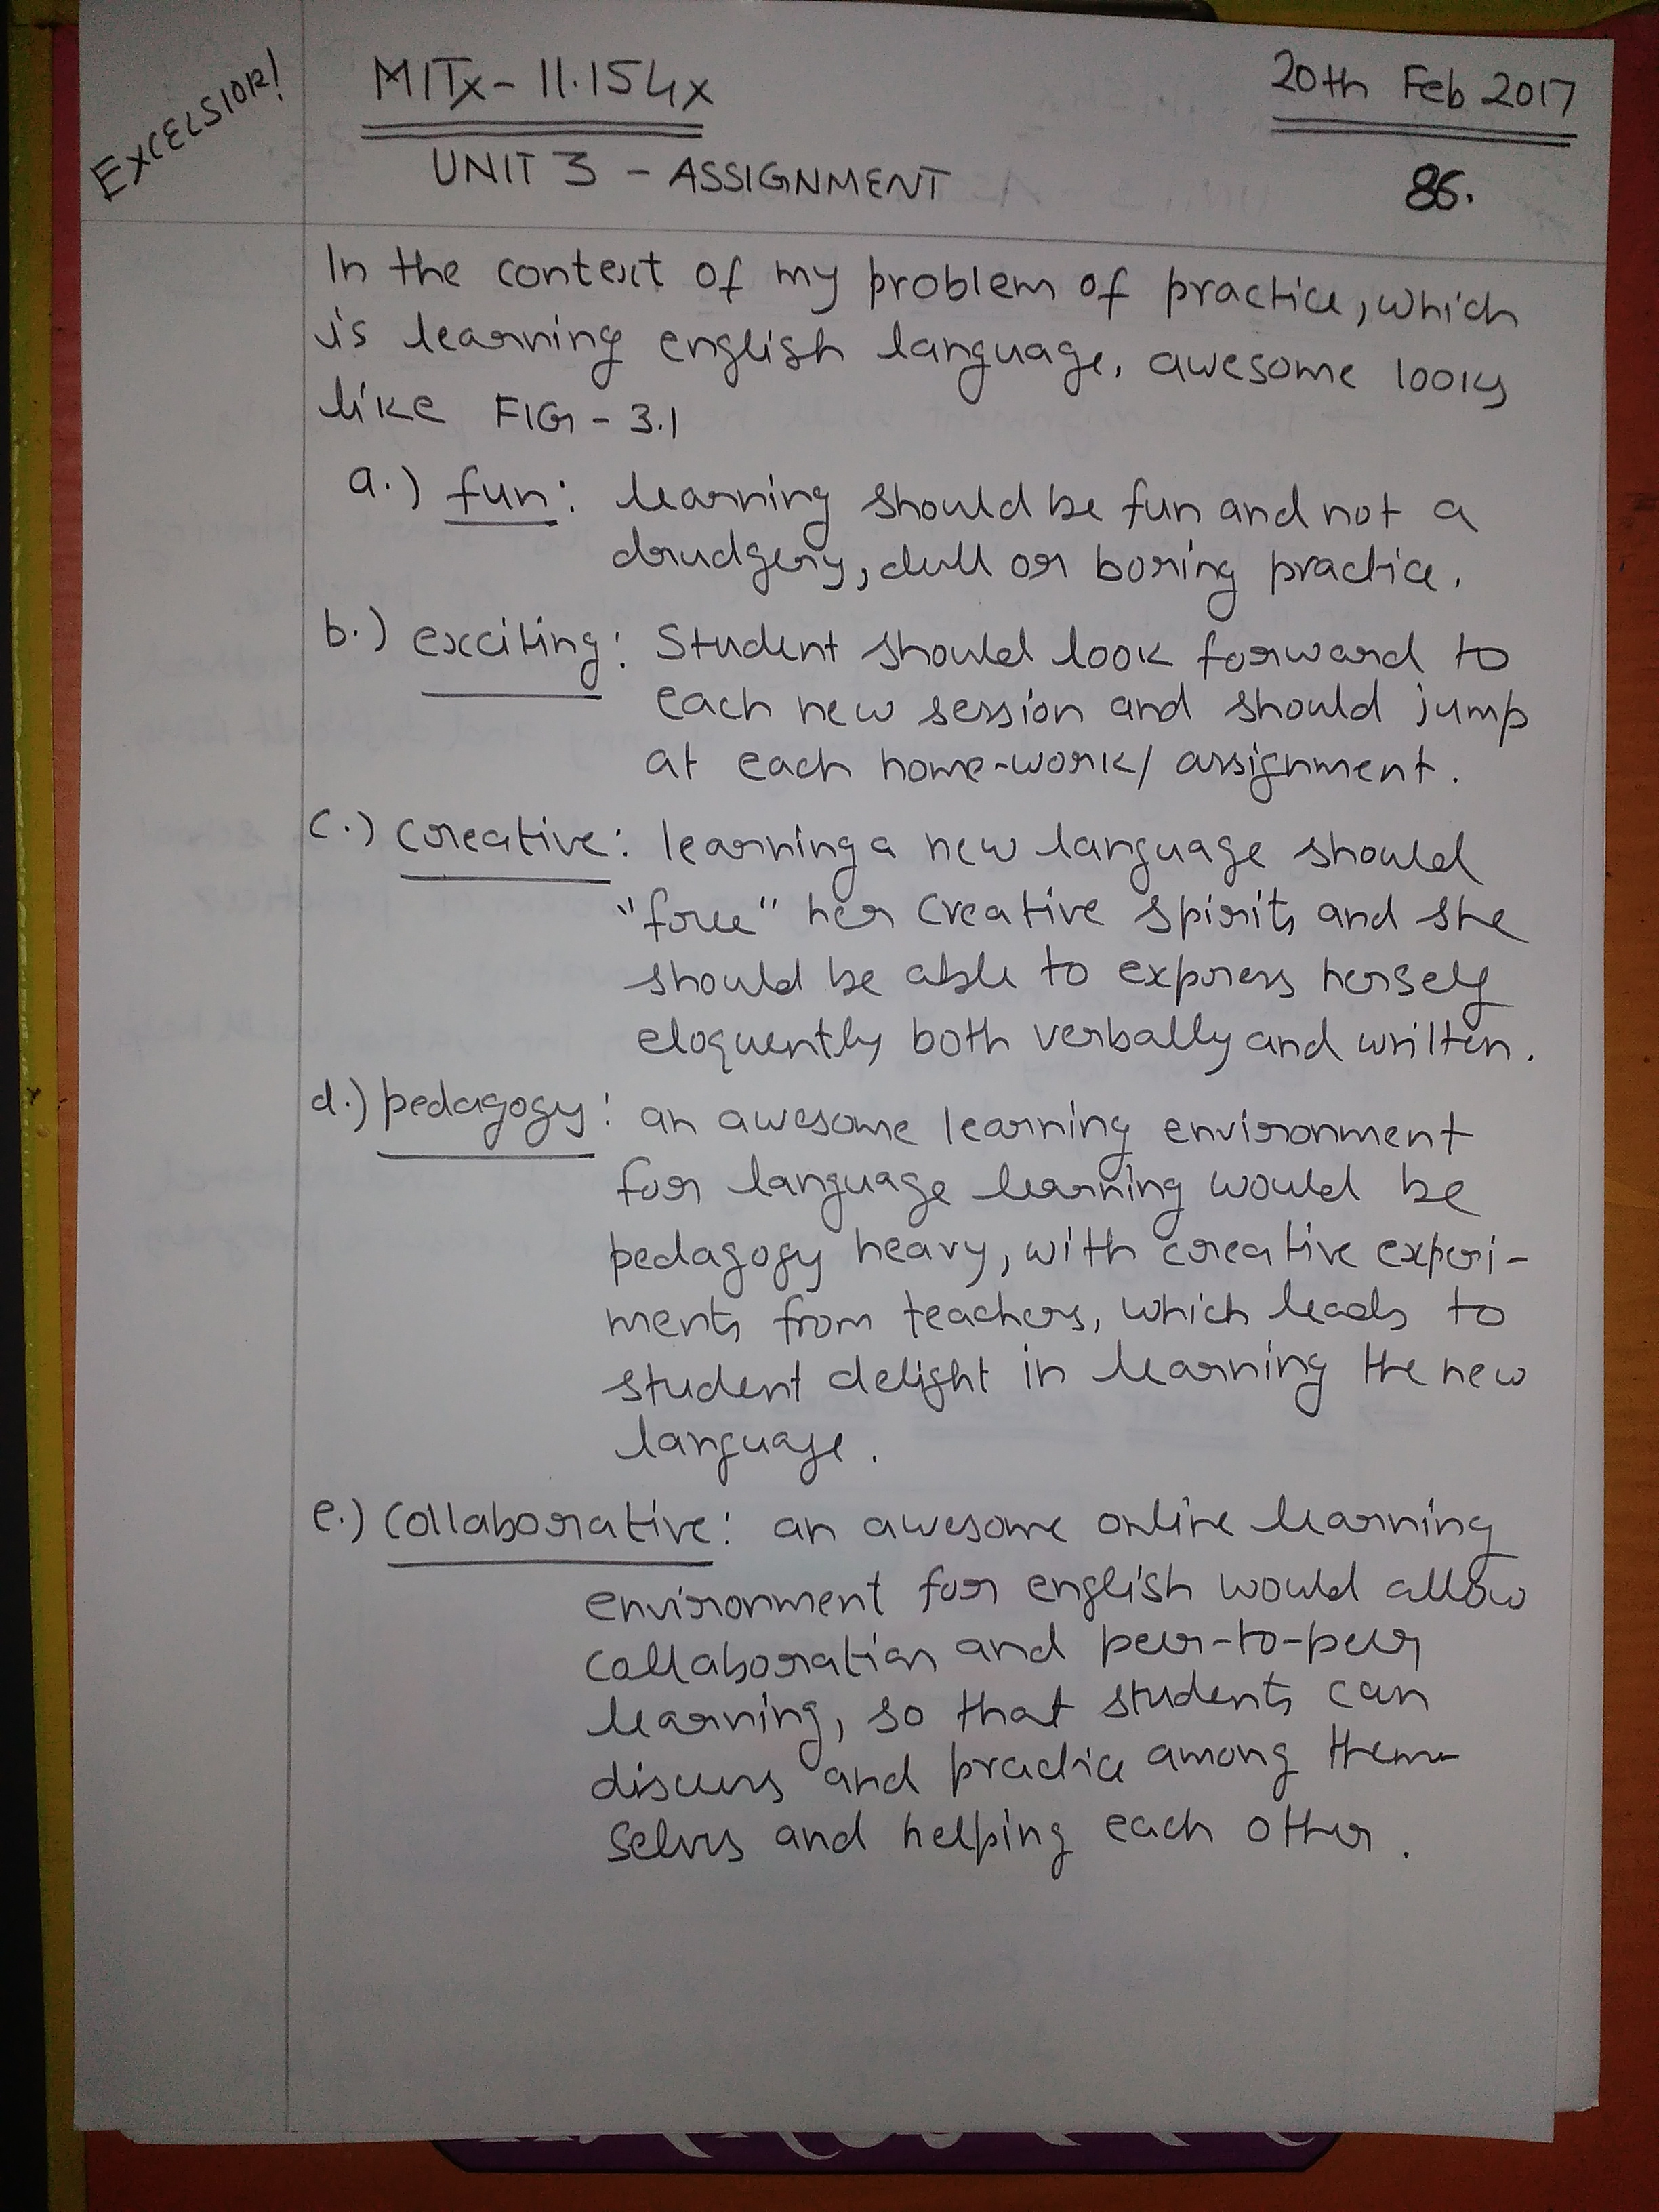 EXCELSIOR!
MITx- 11.154x
20th Feb 2017
UNIT 3 - ASSIGNMENT
86.
In the context of my problem of practice, which
is learning english language, awesome looks
like FIG - 3.1
a.) fun: learning should be fun and not a
drudgery, dull or boring practice.
b.) exciting: Student should look forward to
each new session and should jump
at each home-work/ assignment.
c.) creative: learning a new language should
"free" her creative spirits and she
should be able to express herself
eloquently both verbally and written.
d.) pedagogy: an awesome learning environment
for language learning would be
pedagogy heavy, with creative experi-
ments from teachers, which leads to
student delight in learning the new
language.
e.) collaborative: an awesome online learning
environment for english would allow
collaboration and peer-to-peer
learning, so that students can
discuss and practice among them-
selves and helping each other.